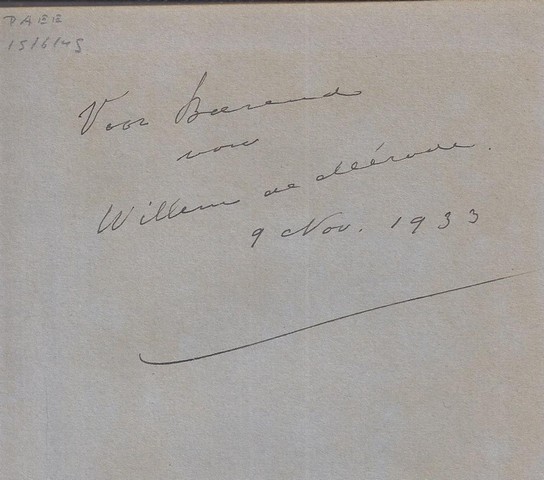 DAEE
15/6/45
Voor Barend
van
Willem de Mérode.
9 Nov. 1933